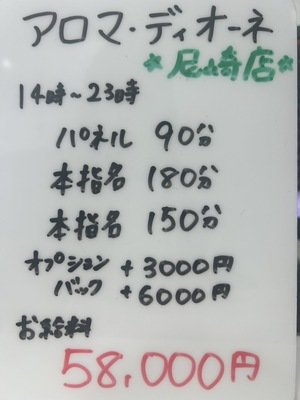 アロマ・ディオーネ
*尼崎店*
14時~23時
パネル 90分
本指名 180分
本指名 150分
オプション +3000円
バック +6000円
お給料
58,000円